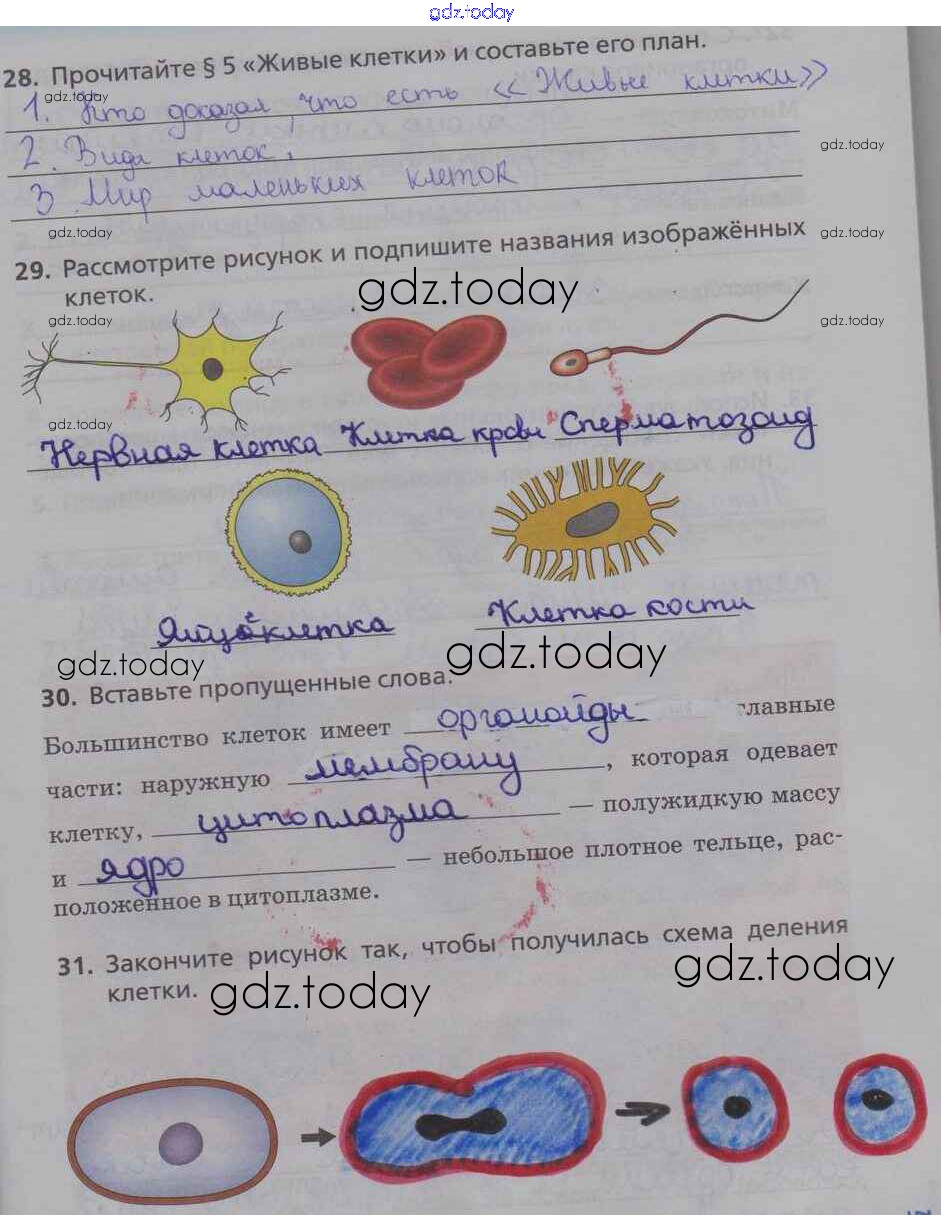 gdz.today
28. Прочитайте § 5 «Живые клетки» и составьте его план.
gdz.today
1. Кто доказал, что есть «Живые клетки»
2. Види клеток.
gdz.today
3 Мир маленьких клеток
gdz.today
gdz.today
29. Рассмотрите рисунок и подпишите названия изображённых
клеток.
gdz.today
gdz.today
gdz.today
gdz.today
Нервная клетка Клетка крови Сперматозоид
Яйцоклетка
Клетка кости
gdz.today
gdz.today
30. Вставьте пропущенные слова.
Большинство клеток имеет органойды главные
части: наружную мембрану, которая одевает
клетку, цитоплазма — полужидкую массу
и ядро — небольшое плотное тельце, рас-
положенное в цитоплазме.
31. Закончите рисунок так, чтобы получилась схема деления
клетки.
gdz.today
gdz.today